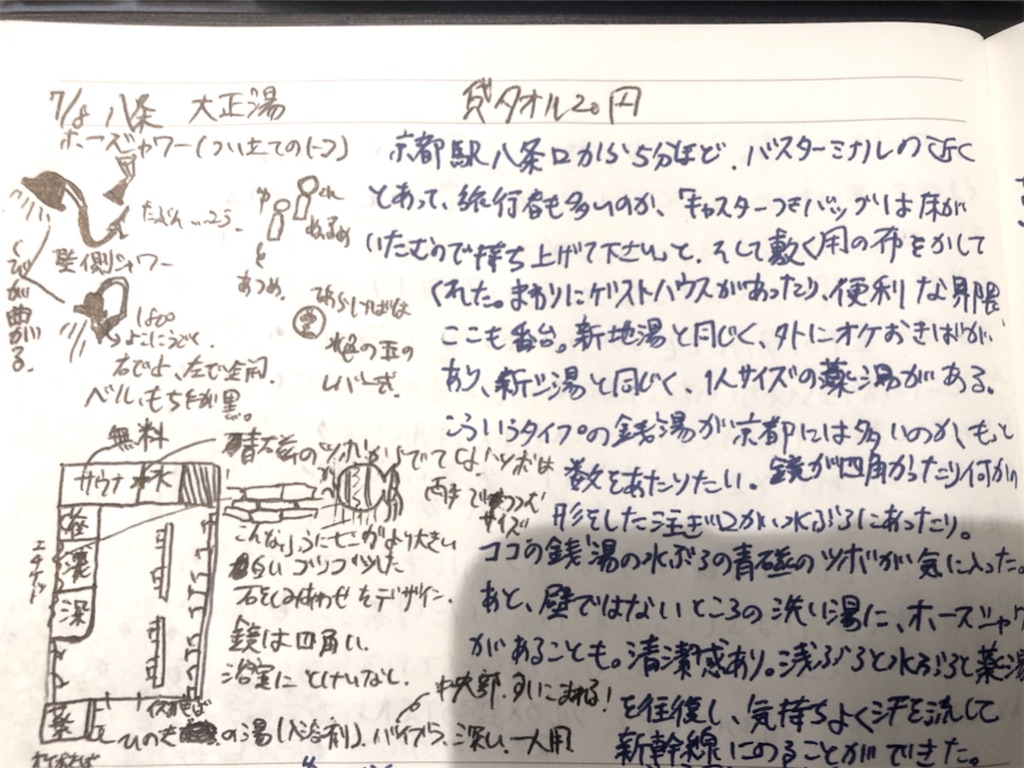 7/8 八条 大正湯 貸タオル20円
ホースシャワー(つい立てのトコ)
たぶん…2コ.
壁側シャワー
くびが曲がる.
180°
よこにうごく.
右で上、左で全開.
ベル、もち
ゆ
ぬるめ
あつめ.
水色の玉の
レバー式.
京都駅八条口から5分ほど.バスターミナルの近く
とあって、旅行者も多いのか、「キャスターつきバッグは床が
いたむので持ち上げて下さい」と.そして敷く用の布をかして
くれた。まわりにゲストハウスがあったり、便利な界隈
ここも番台。新地湯と同じく、外にオケおきばが
あり、新シ湯と同じく、1人サイズの薬湯がある.
こういうタイプの銭湯が京都には多いのか、もっと
数をあたりたい。鏡が四角かったり何かの
形をした注ぎ口が水ぶろにあったり。
ココの銭湯の水ぶろの青磁のツボが気に入った。
あと、壁ではないところの洗い湯に、ホースシャワ
があることも。清潔感あり。浅ぶろと水ぶろと薬湯
を往復し、気持ちよく汗を流して
新幹線にのることができた。
無料
サウナ 水
深
薬
青磁のツボから
ツボは
両手で
サイズ
石をくみ合わせたデザイン.
鏡は四角い.
浴室にとけいなし.
中央部、すいこまれる!
の湯(入浴剤).バイブラ、深い.一人用